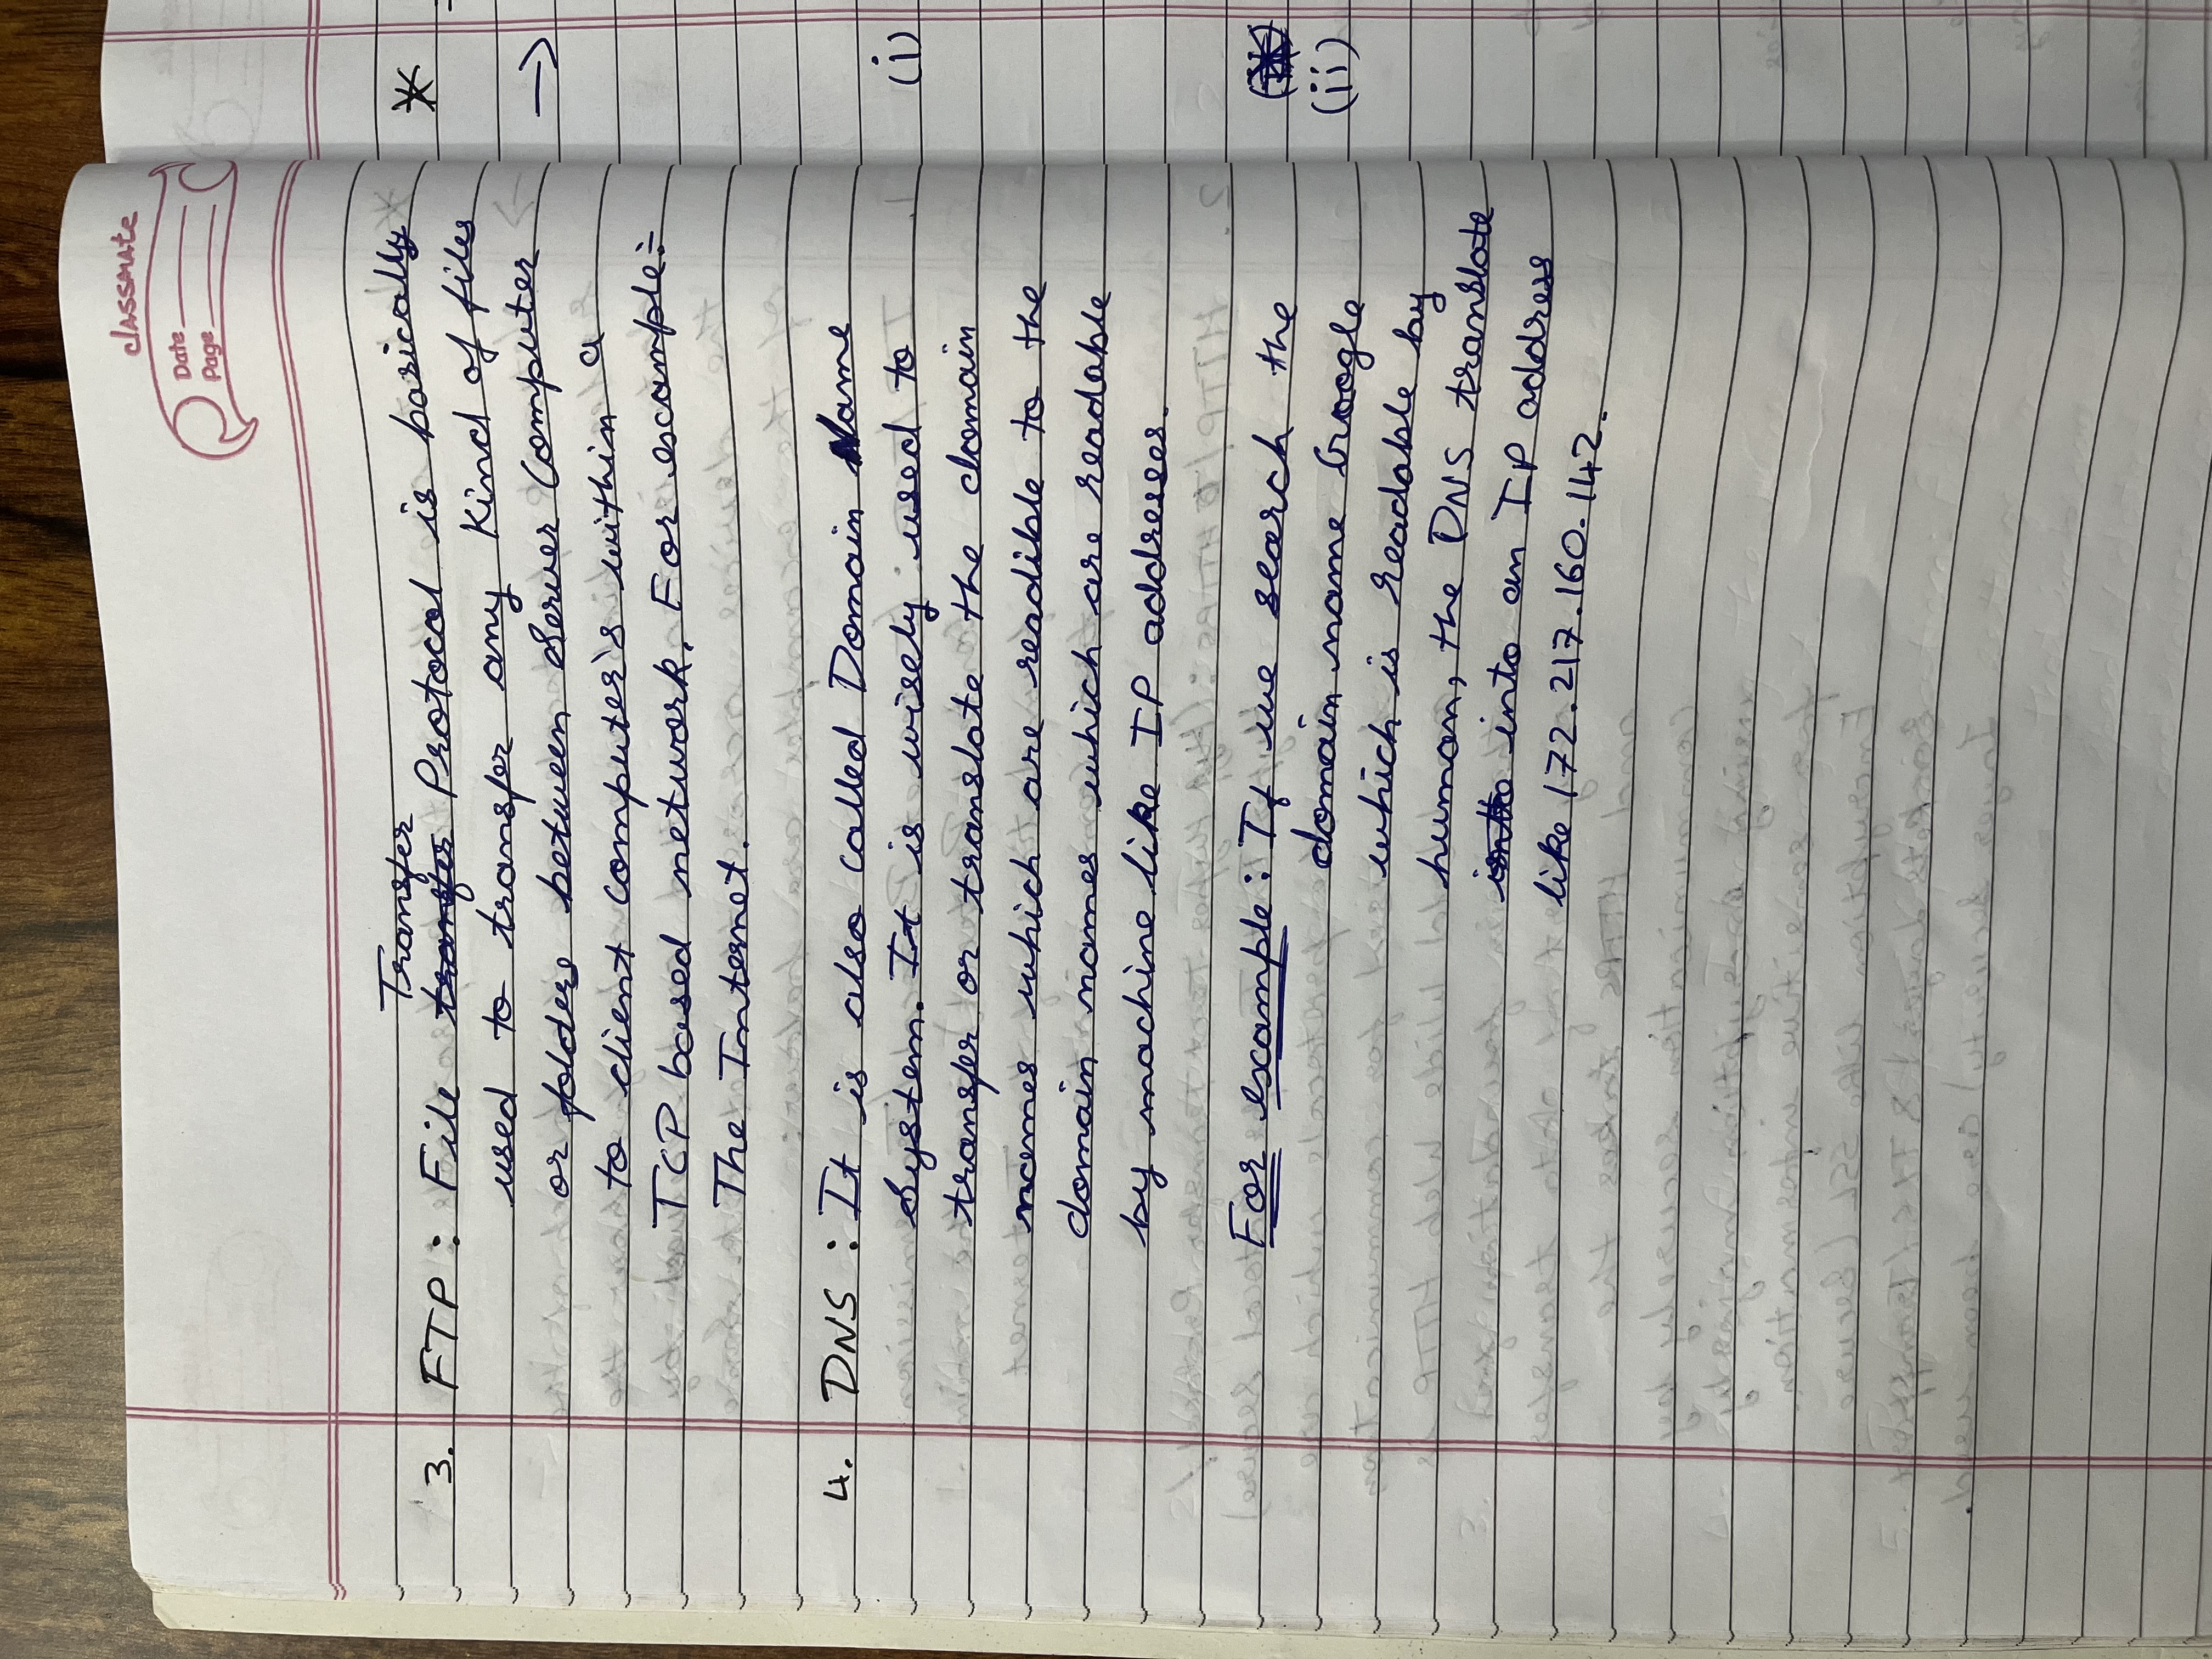 classmate
Date
Page
Transfer
3. FTP : File transfer Protocol is basically
used to transfer any Kind of files
or folders between Server Computer
to client computer's within a
TCP based network. For example:-
The Internet.
4. DNS : It is also called Domain Name
System. It is wisely used to
transfer or translate the domain
names which are readible to the
domain names which are readable
by machine like IP addresses.
For example : If we search the
domain name Google
which is readable by
human, the DNS translate
into into an IP address
like 172.217.160.142.
*
→
(i)
(ii)